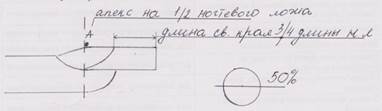 апекс на 1/2 ногтевого ложа
А
длина св. края 3/4 длины н. л
50%